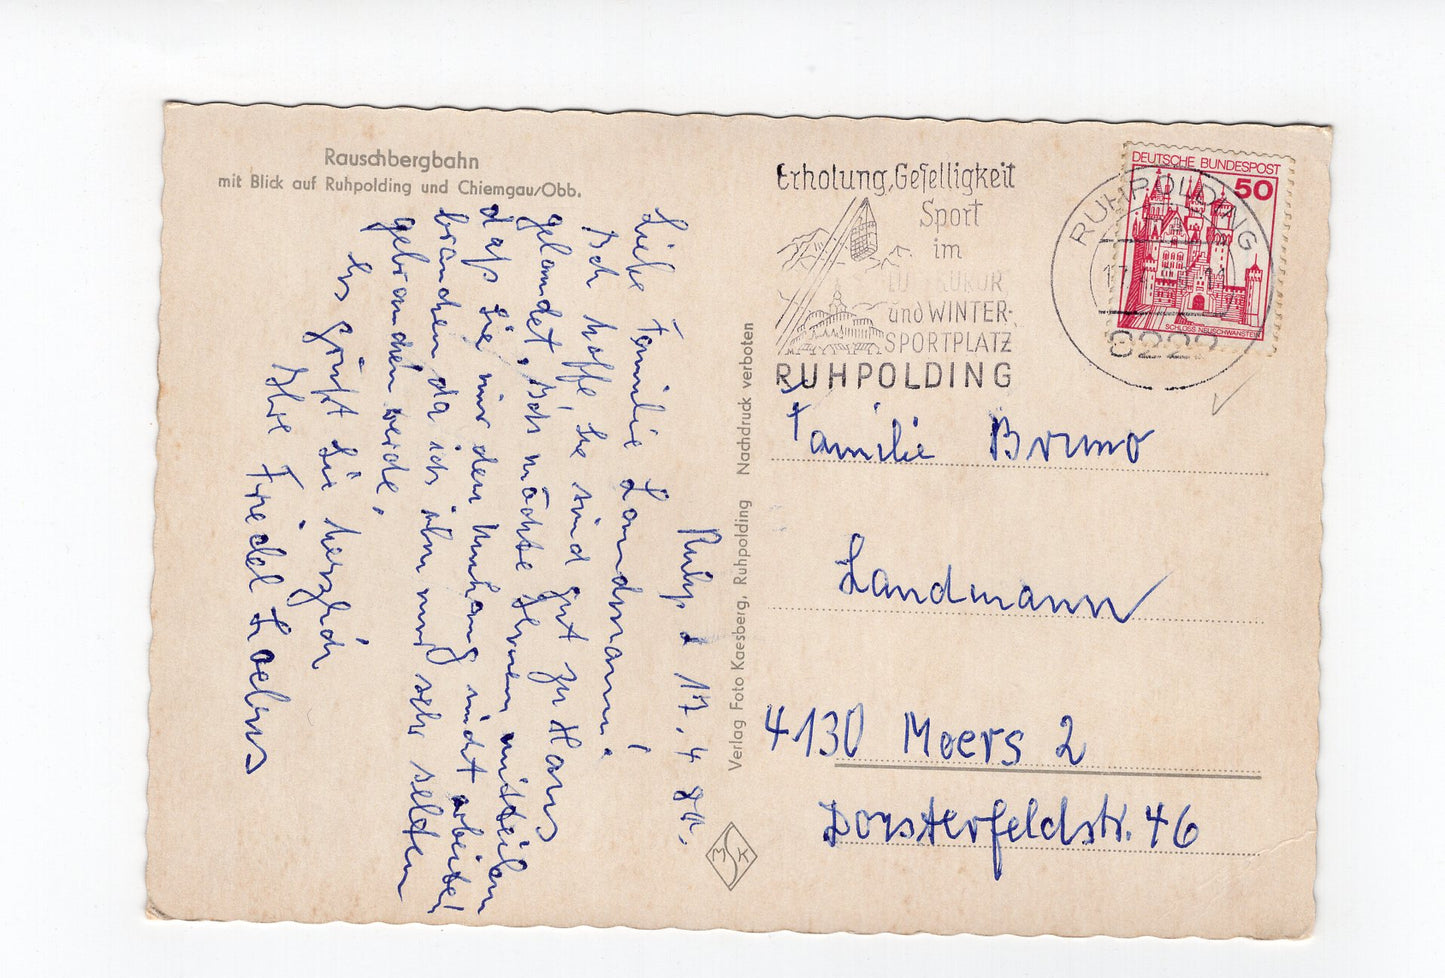 Rauschbergbahn
mit Blick auf Ruhpolding und Chiemgau/Obb.
Ruhp d 17. 4 80.
Liebe Familie Landmann!
Ich hoffe Sie sind gut zu Haus
gelandet, ich möchte Ihnen mitteilen
daß Sie mir den Umhang nicht
brauchen da ich ihn nur sehr selten
gebrauchen werde,
Es grüßt Sie herzlich
Ihre Friedel
Verlag Foto Kaesberg, Ruhpolding Nachdruck verboten
MSK
Erholung, Geselligkeit
Sport
im
LUFTKURORT
und WINTER-
SPORTPLATZ
RUHPOLDING
RUHPOLDING
8222
DEUTSCHE BUNDESPOST
50
SCHLOSS NEUSCHWANSTEIN
Familie Bruno
Landmann
4130 Moers 2
Dorsterfeldstr. 46